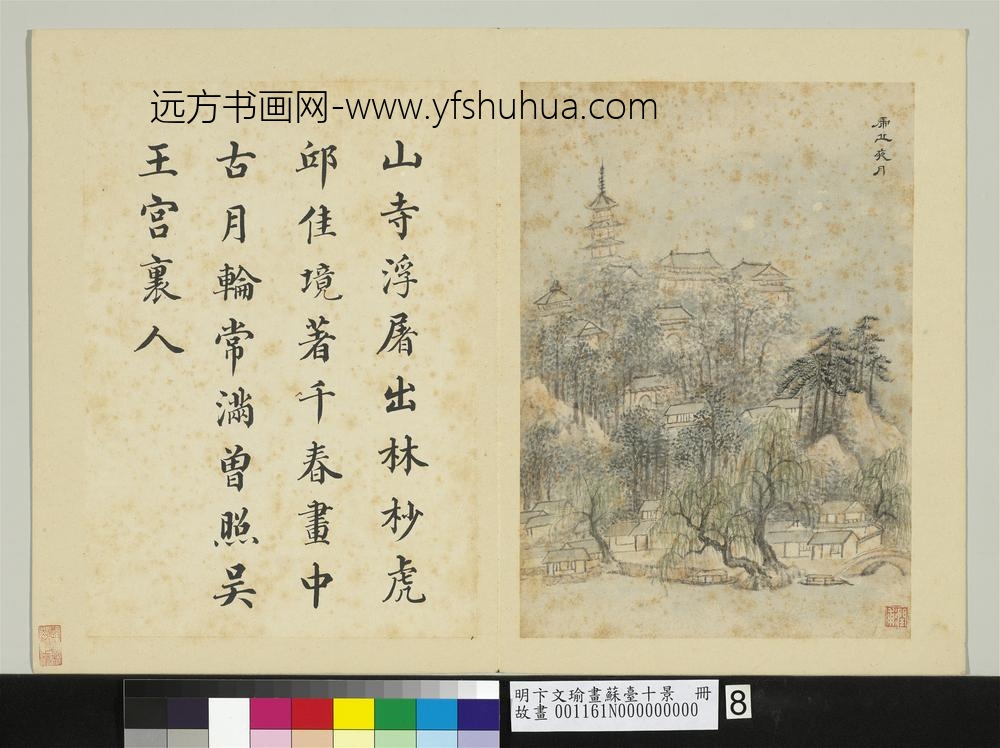 远方书画网-www.yfshuhua.com
虎丘夜月
山寺浮屠出林杪虎
邱佳境著千春畫中
古月輪常滿曾照吴
王宫裏人
明卞文瑜畫蘇臺十景 冊
故畫 001161N000000000
8